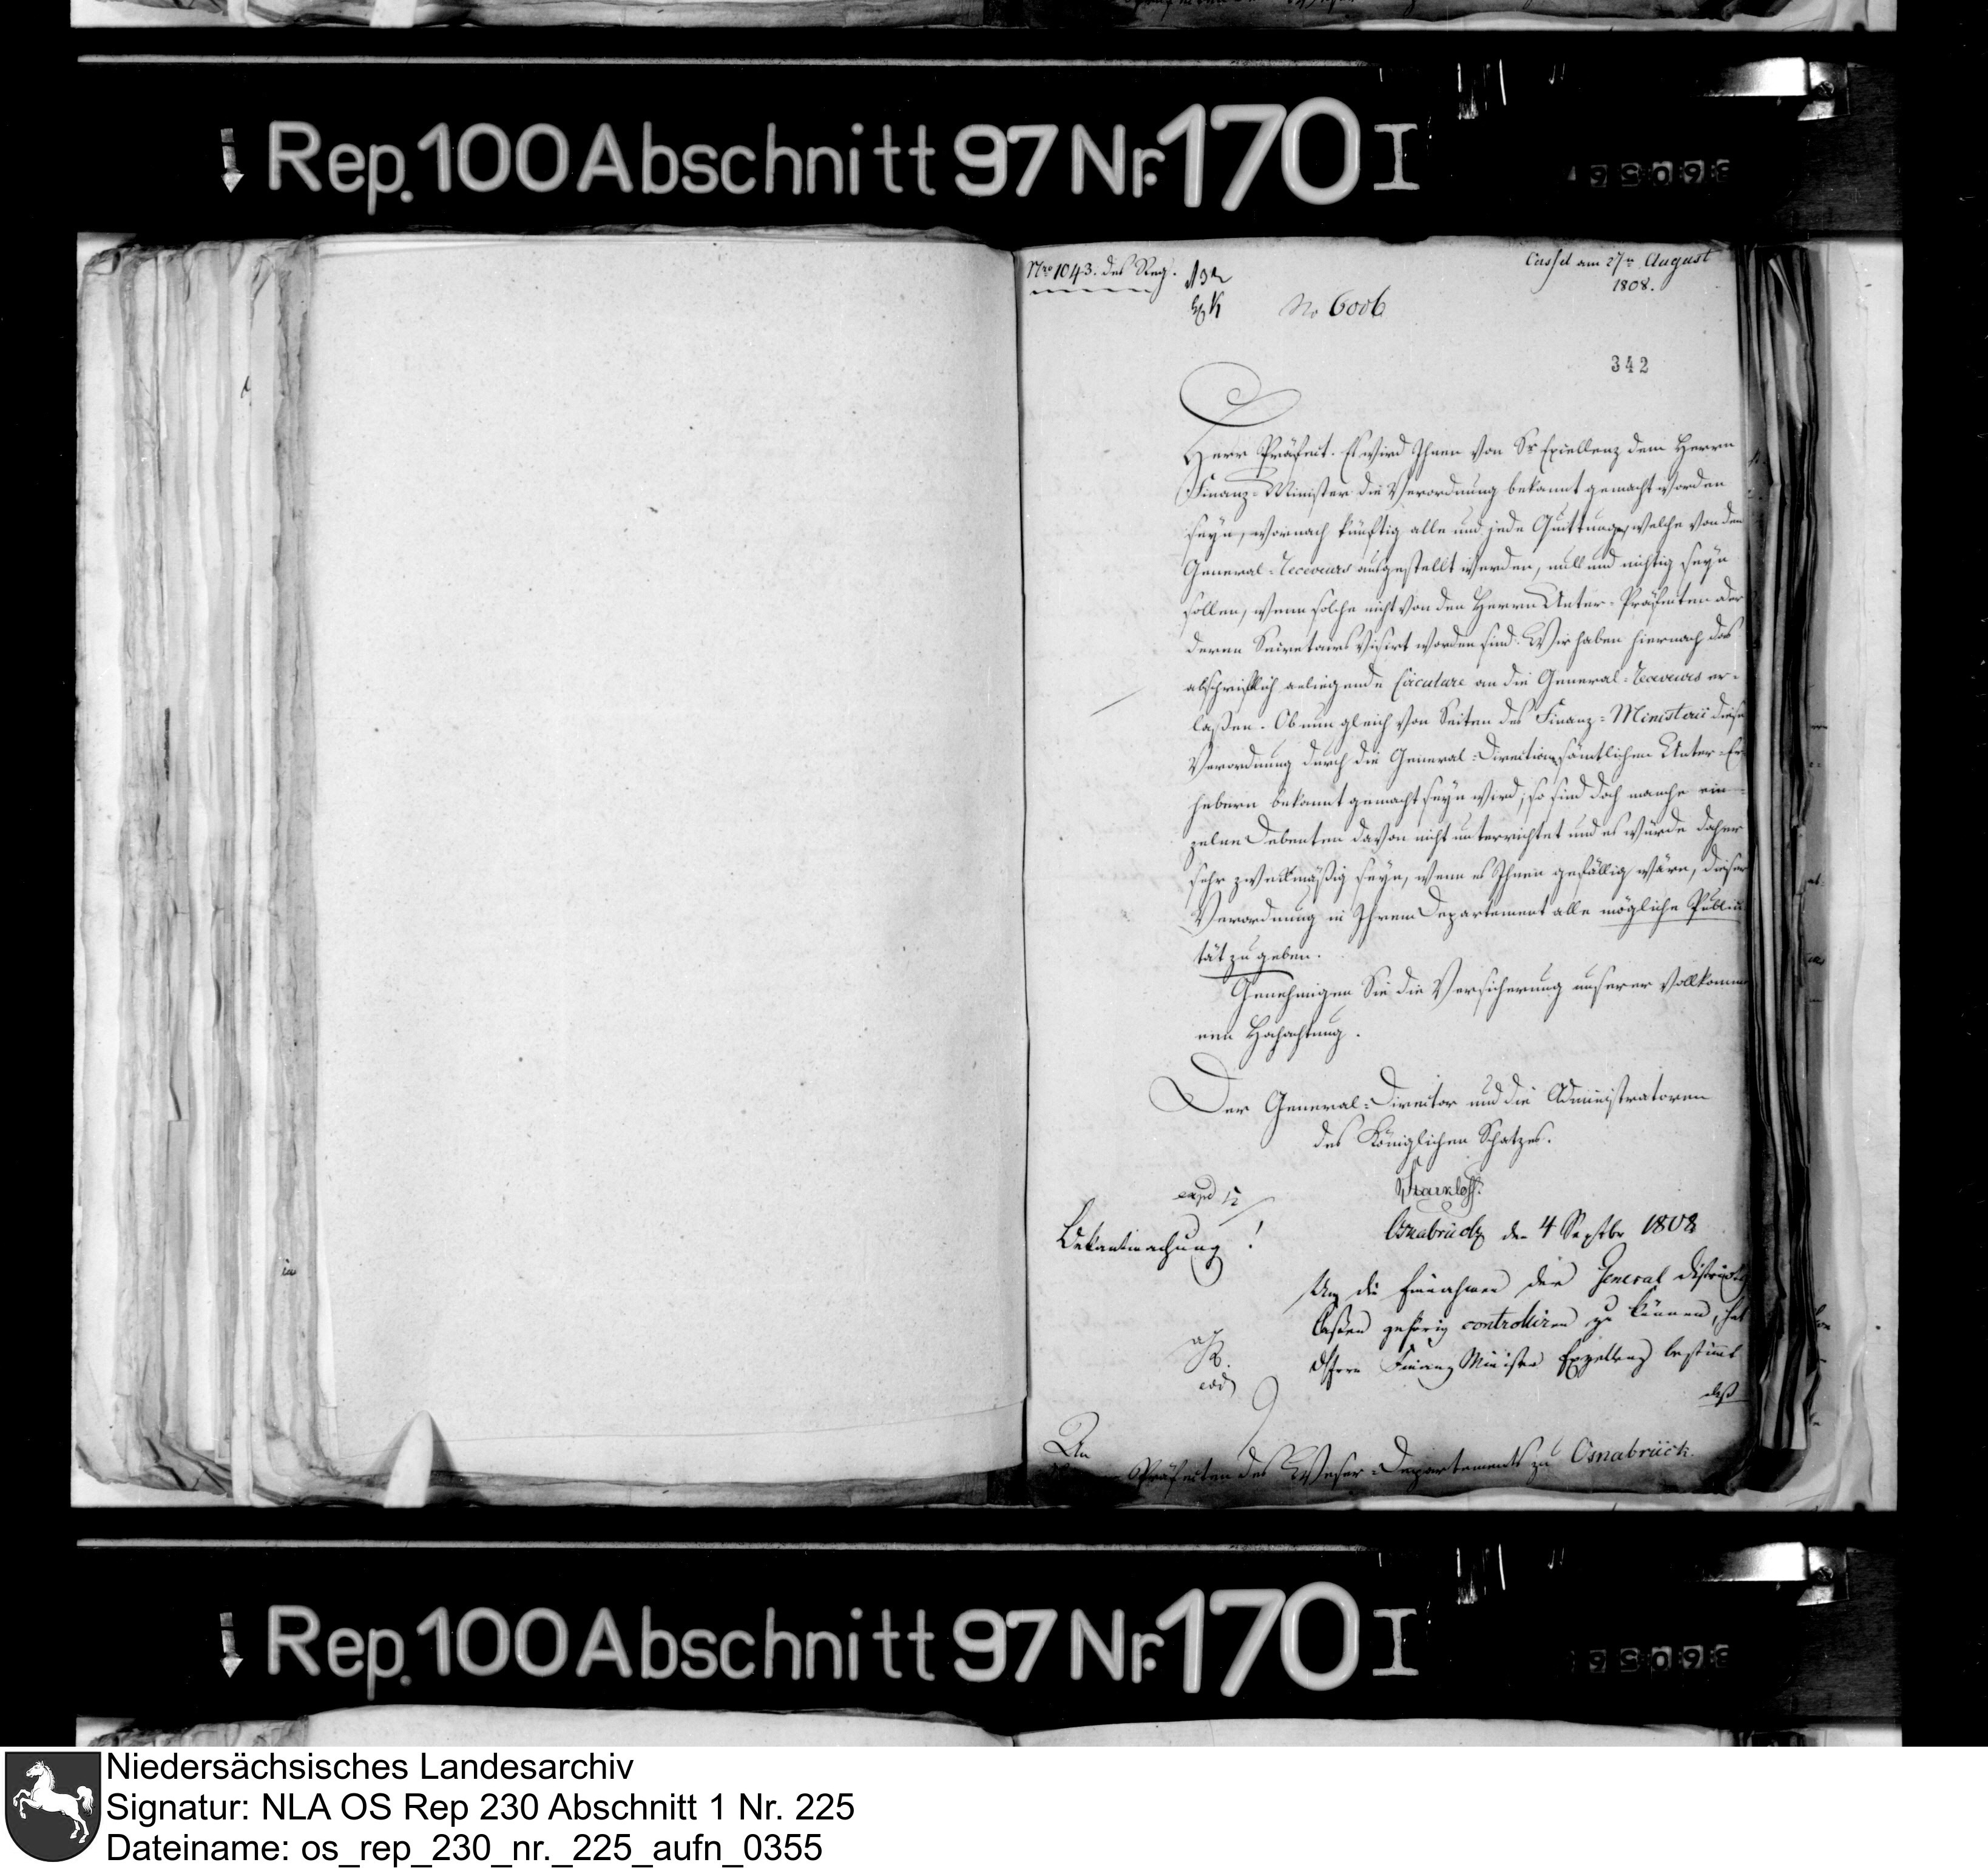 Rep. 100 Abschnitt 97 Nr. 170 I
Nro 1043. des Reg.
Cassel am 27ten August
1808.
No 6006
342
Herr Präfect. Es wird Ihnen von Sr Excellenz dem Herrn
Finanz-Minister die Verordnung bekannt gemacht worden
seyn, wornach künftig alle und jede Quittungen, welche von den
General-Receveurs ausgestellt werden, null und nichtig seyn
sollen, wenn solche nicht von den Herrn Unter-Präfecten oder
deren Secretairs visirt worden sind. Wir haben hiernach das
abschriftlich anliegende Circulare an die General-Receveurs er-
laßen. Ob nun gleich von Seiten des Finanz-Ministerii diese
Verordnung durch die General-Direction sämtlichen Unter-Er
hebern bekannt gemacht seyn wird, so sind doch manche ein-
zelne Debenten davon nicht unterrichtet und es würde daher
sehr zweckmäßig seyn, wenn es Ihnen gefällig wäre, dieser
Verordnung in Ihrem Departement alle mögliche Publici
tät zu geben.
Genehmigen Sie die Versicherung unserer vollkomme
nen Hochachtung.
Der General-Director und die Administratoren
des Königlichen Schatzes.
Starkloff.
expd 12
Bekantmachung!
Osnabrück den 4 Septbr 1808
Um die Einnahmen der General Districts
Caßen gehörig controlliren zu können, hat
des Herrn Finanz Minister Exzellenz bestimt
daß
An
Präfecten des Weser-Departements zu Osnabrück.
Rep. 100 Abschnitt 97 Nr. 170 I
Niedersächsisches Landesarchiv
Signatur: NLA OS Rep 230 Abschnitt 1 Nr. 225
Dateiname: os_rep_230_nr._225_aufn_0355